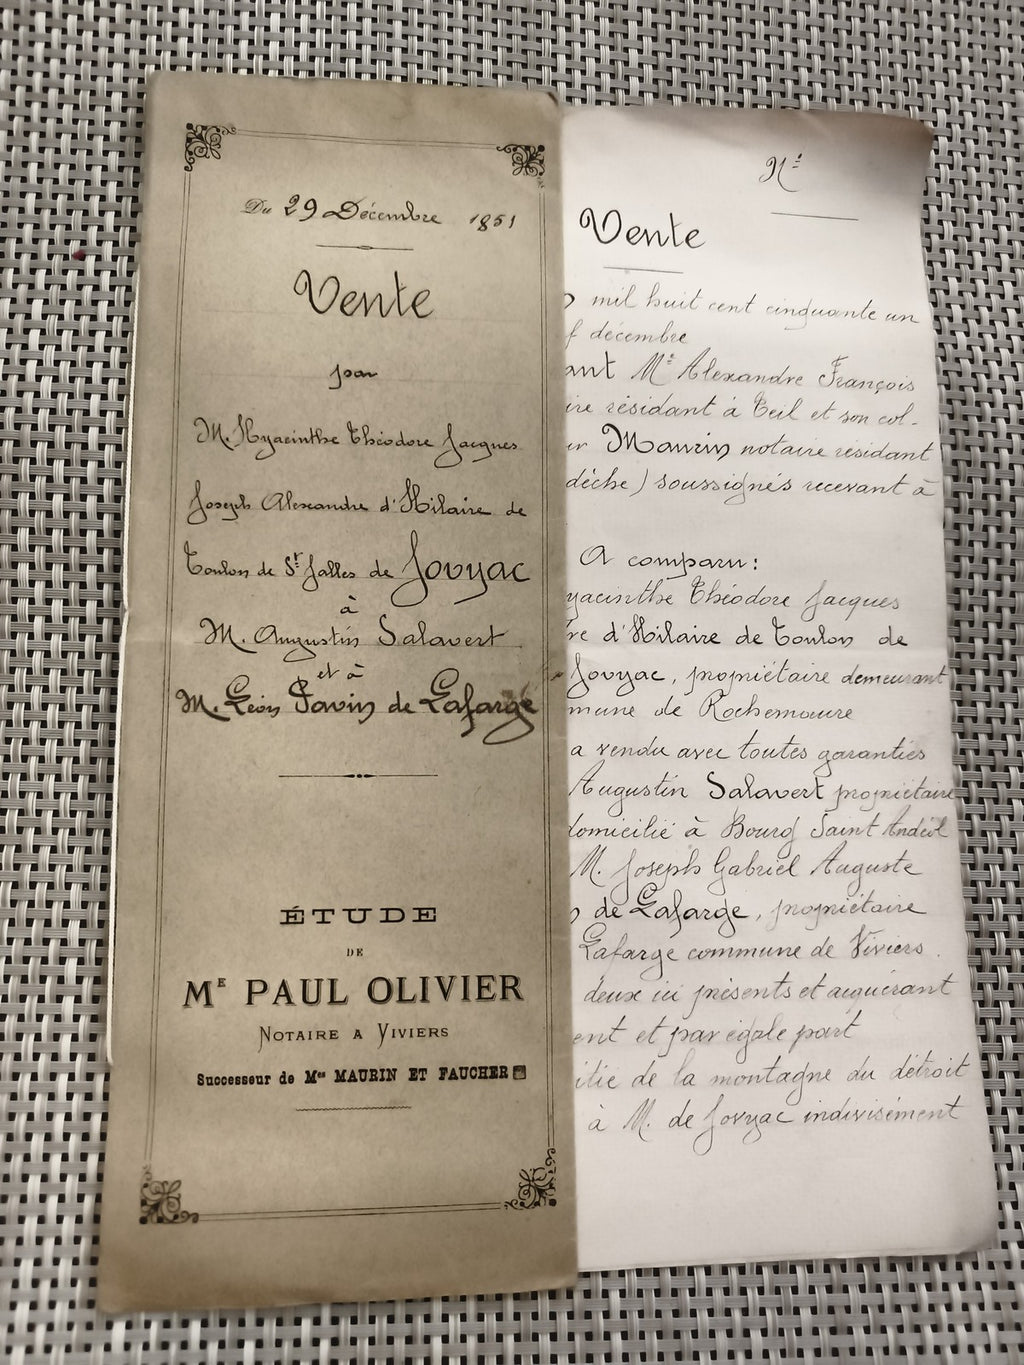 Du 29 Décembre 1851
Vente
par
M. Hyacinthe Théodore Jacques
Joseph Alexandre d'Hilaire de
Toulon de St Jalles de Jovyac
à
M. Augustin Salavert
et à
M. Léon Pavin de Lafarge
ÉTUDE
DE
ME PAUL OLIVIER
NOTAIRE A VIVIERS
Successeur de Mes MAURIN ET FAUCHER
Vente
mil huit cent cinquante un
f décembre
ant Me Alexandre François
ire résidant à Teil et son col-
ur Maurin notaire résidant
dèche) soussignés recevant à
A comparu:
yacinthe Théodore Jacques
re d'Hilaire de Toulon de
Jovyac, propriétaire demeurant
mune de Rochemaure
a vendu avec toutes garanties
Augustin Salavert propriétaire
domicilié à Bourg Saint Andéol
M. Joseph Gabriel Auguste
de Lafarge, propriétaire
Lafarge commune de Viviers.
deux ici présents et aiquérant
ent et par égale part
itié de la montagne du détroit
à M. de Jovyac indivisément